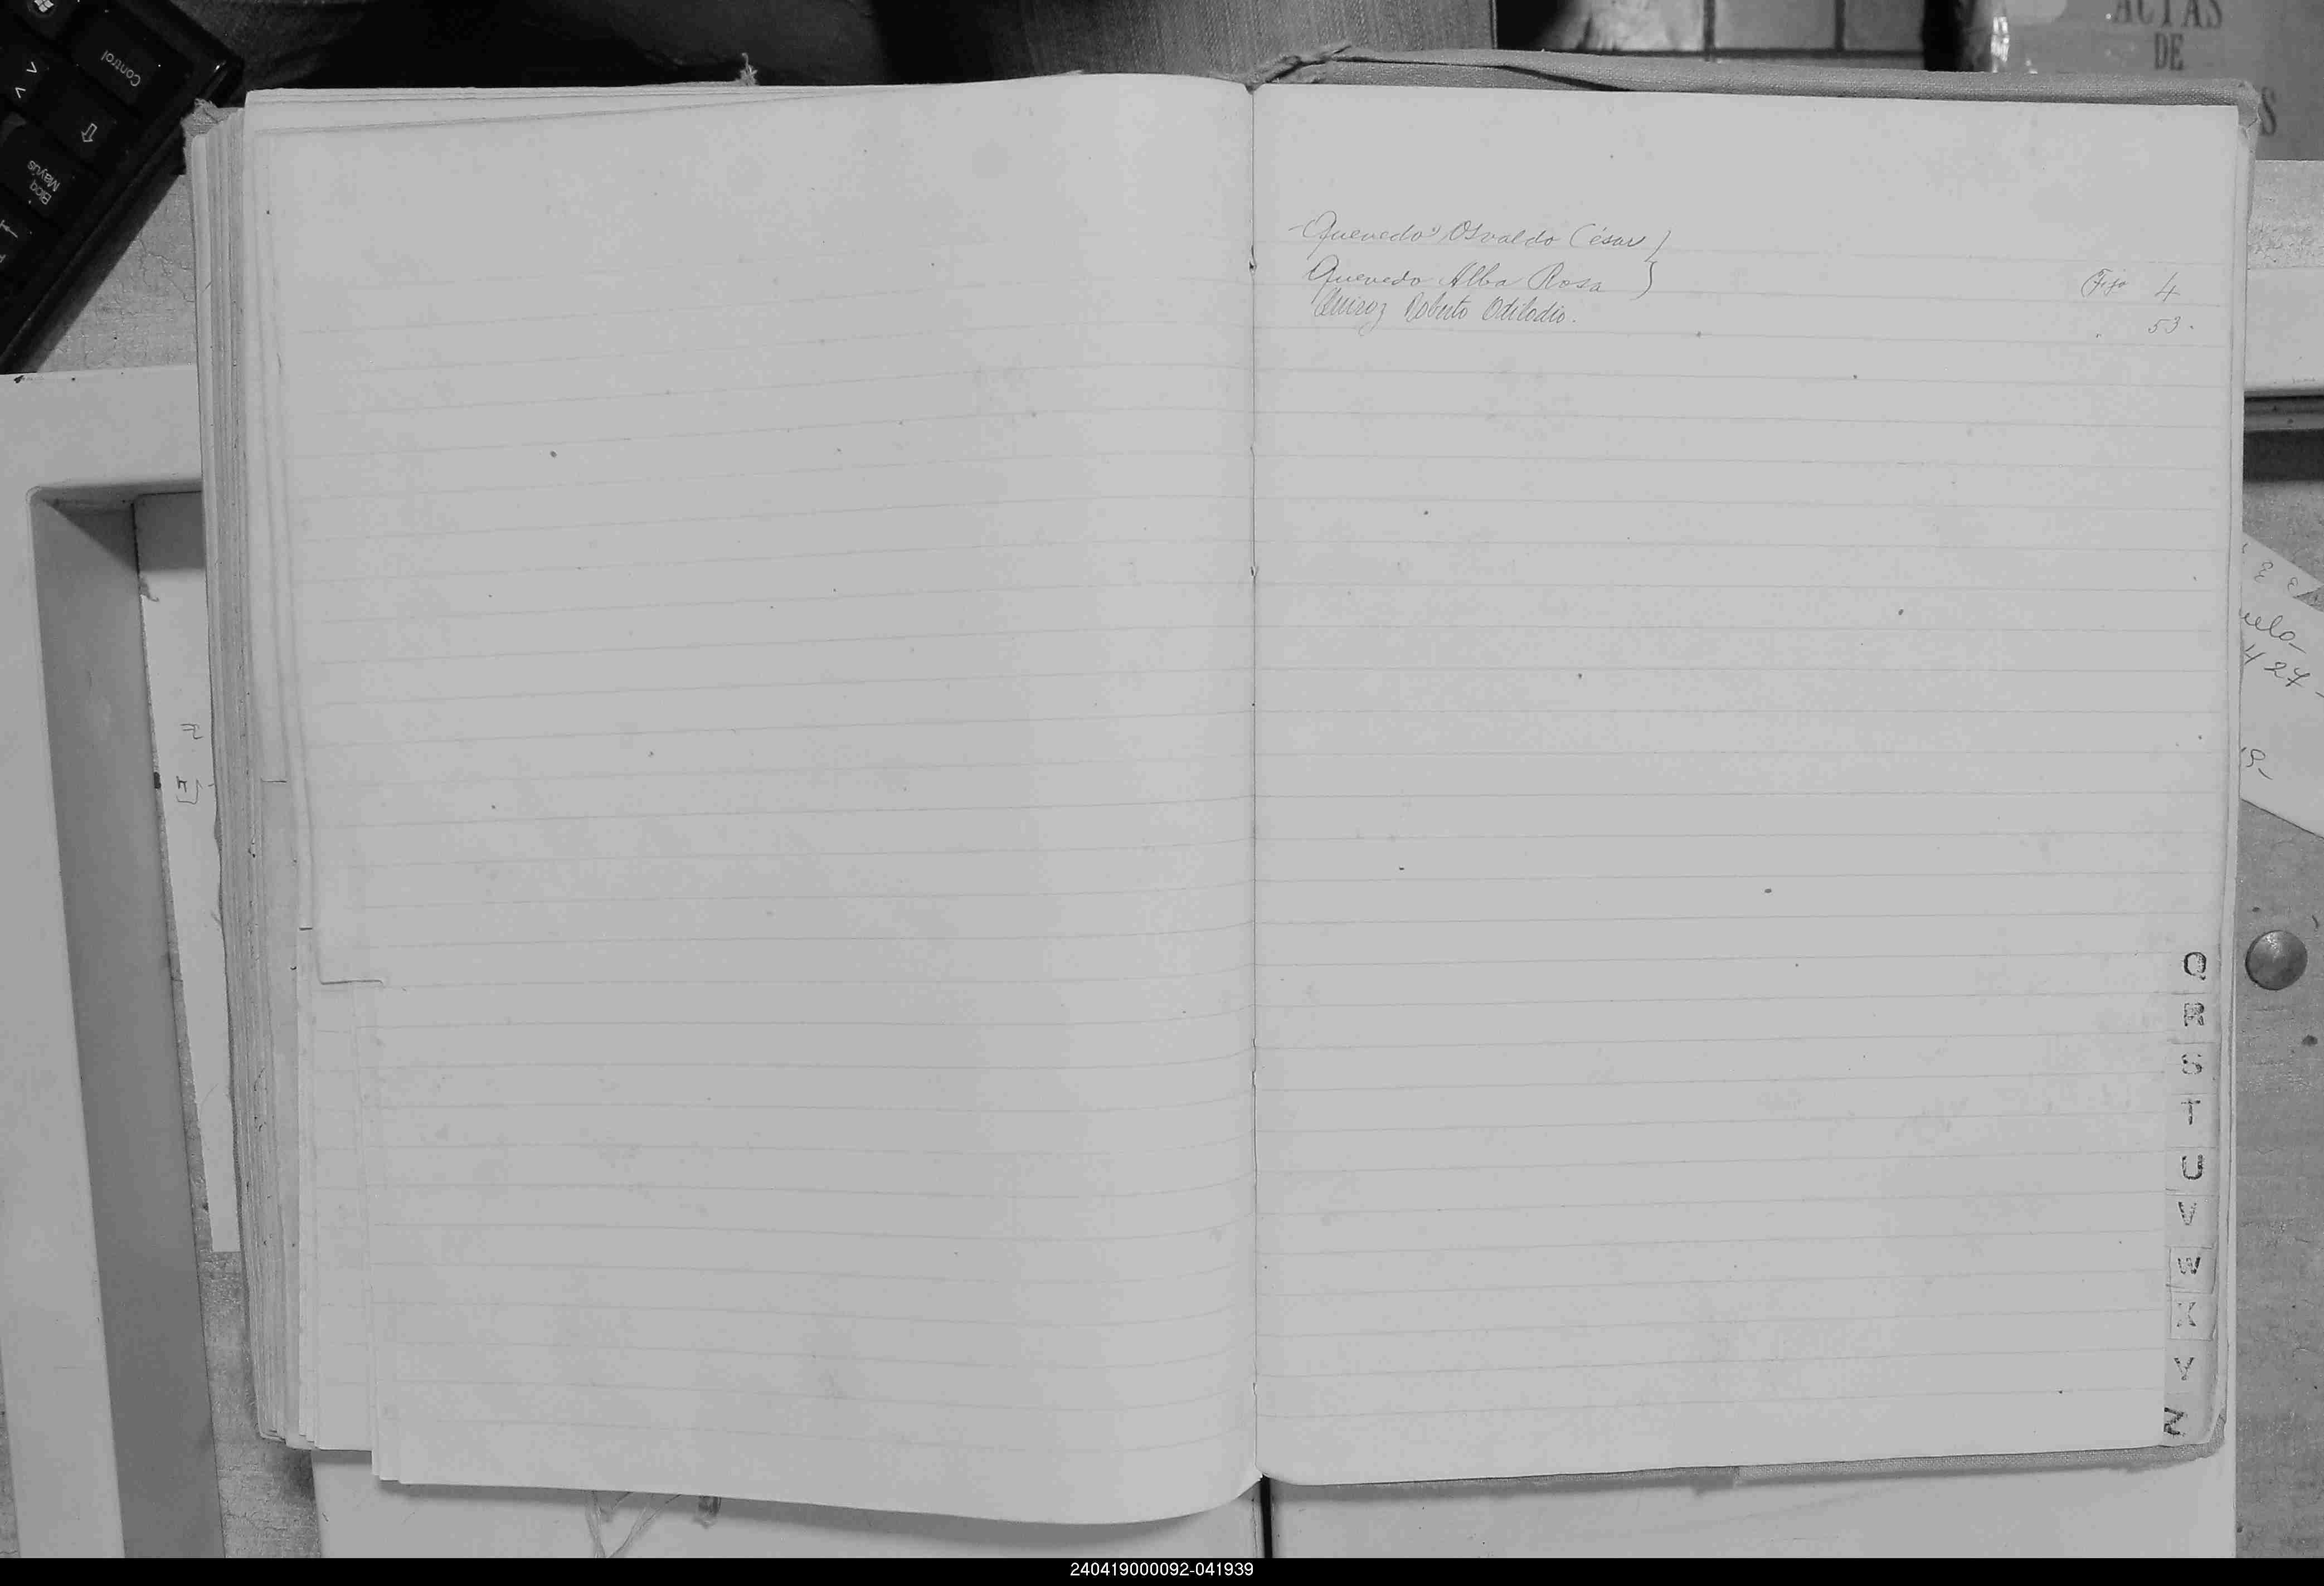 Control
Bloq
Mayús
ACTAS
DE
S
Quevedo Osvaldo César }
Quevedo Alba Rosa } 4
Quiroz Roberto Odilodio. 53.
Q
R
S
T
U
V
W
X
Y
Z
uela
427-
240419000092-041939